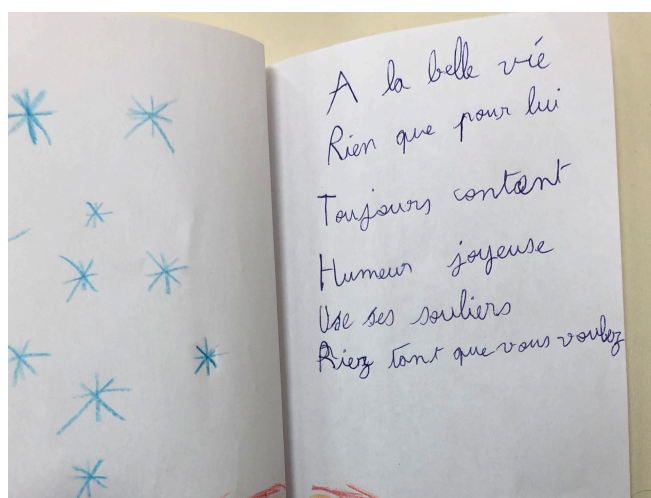 A la belle vie
Rien que pour lui
Toujours content
Humeur joyeuse
Use ses souliers
Riez tant que vous voulez